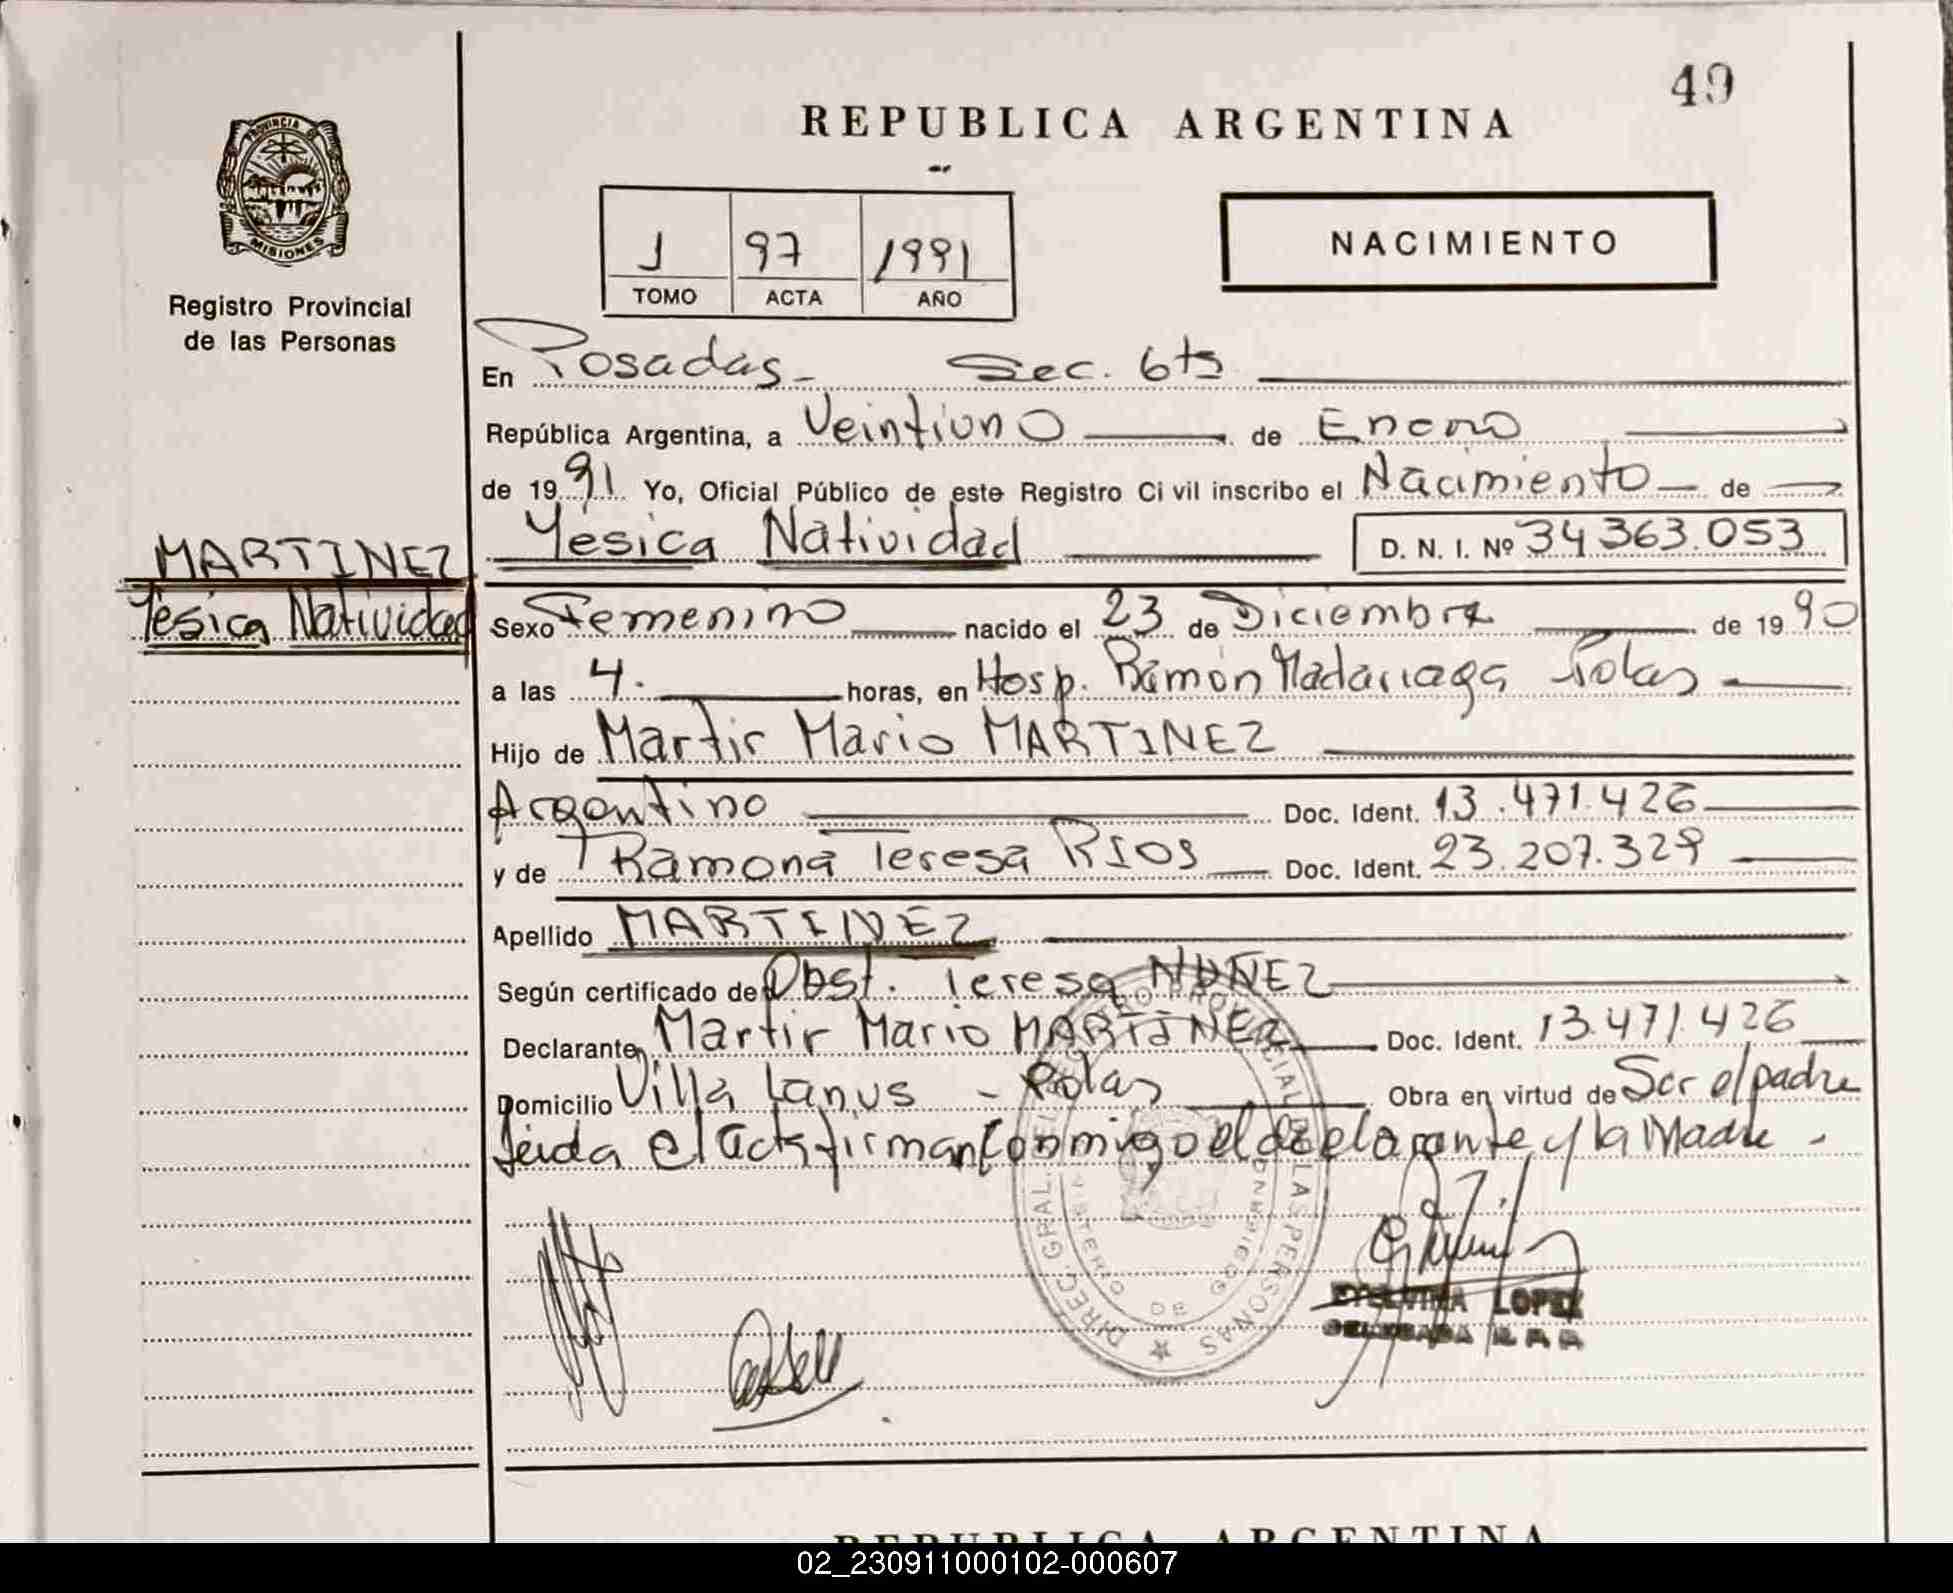 49
REPUBLICA ARGENTINA
PROVINCIA DE
MISIONES
Registro Provincial
de las Personas
J 97 1991
TOMO ACTA AÑO
NACIMIENTO
En Posadas - Sec. 6ta
República Argentina, a Veintiuno de Enero
de 1991 Yo, Oficial Público de este Registro Civil inscribo el Nacimiento de
MARTINEZ
Yesica Natividad
Yesica Natividad D. N. I. Nº 34 363.053
Sexo Femenino nacido el 23 de Diciembre de 1990
a las 4. horas, en Hosp. Ramón Madariaga Pdas
Hijo de Martir Mario MARTINEZ
Argentino Doc. Ident. 13.471.426
y de Ramona Teresa RIOS Doc. Ident. 23.207.329
Apellido MARTINEZ
Según certificado de Obst. Teresa NUÑEZ
Declarante Martir Mario MARTINEZ Doc. Ident. 13.471.426
Domicilio Villa Lanus - Pdas Obra en virtud de Ser el padre
Leida el acta firman conmigo el declarante y la Madre.
DIREC. GRAL. REGISTRO PROVINCIAL DE LAS PERSONAS
MINISTERIO DE GOBIERNO
LOPEZ
REPUBLICA ARGENTINA
02_230911000102-000607